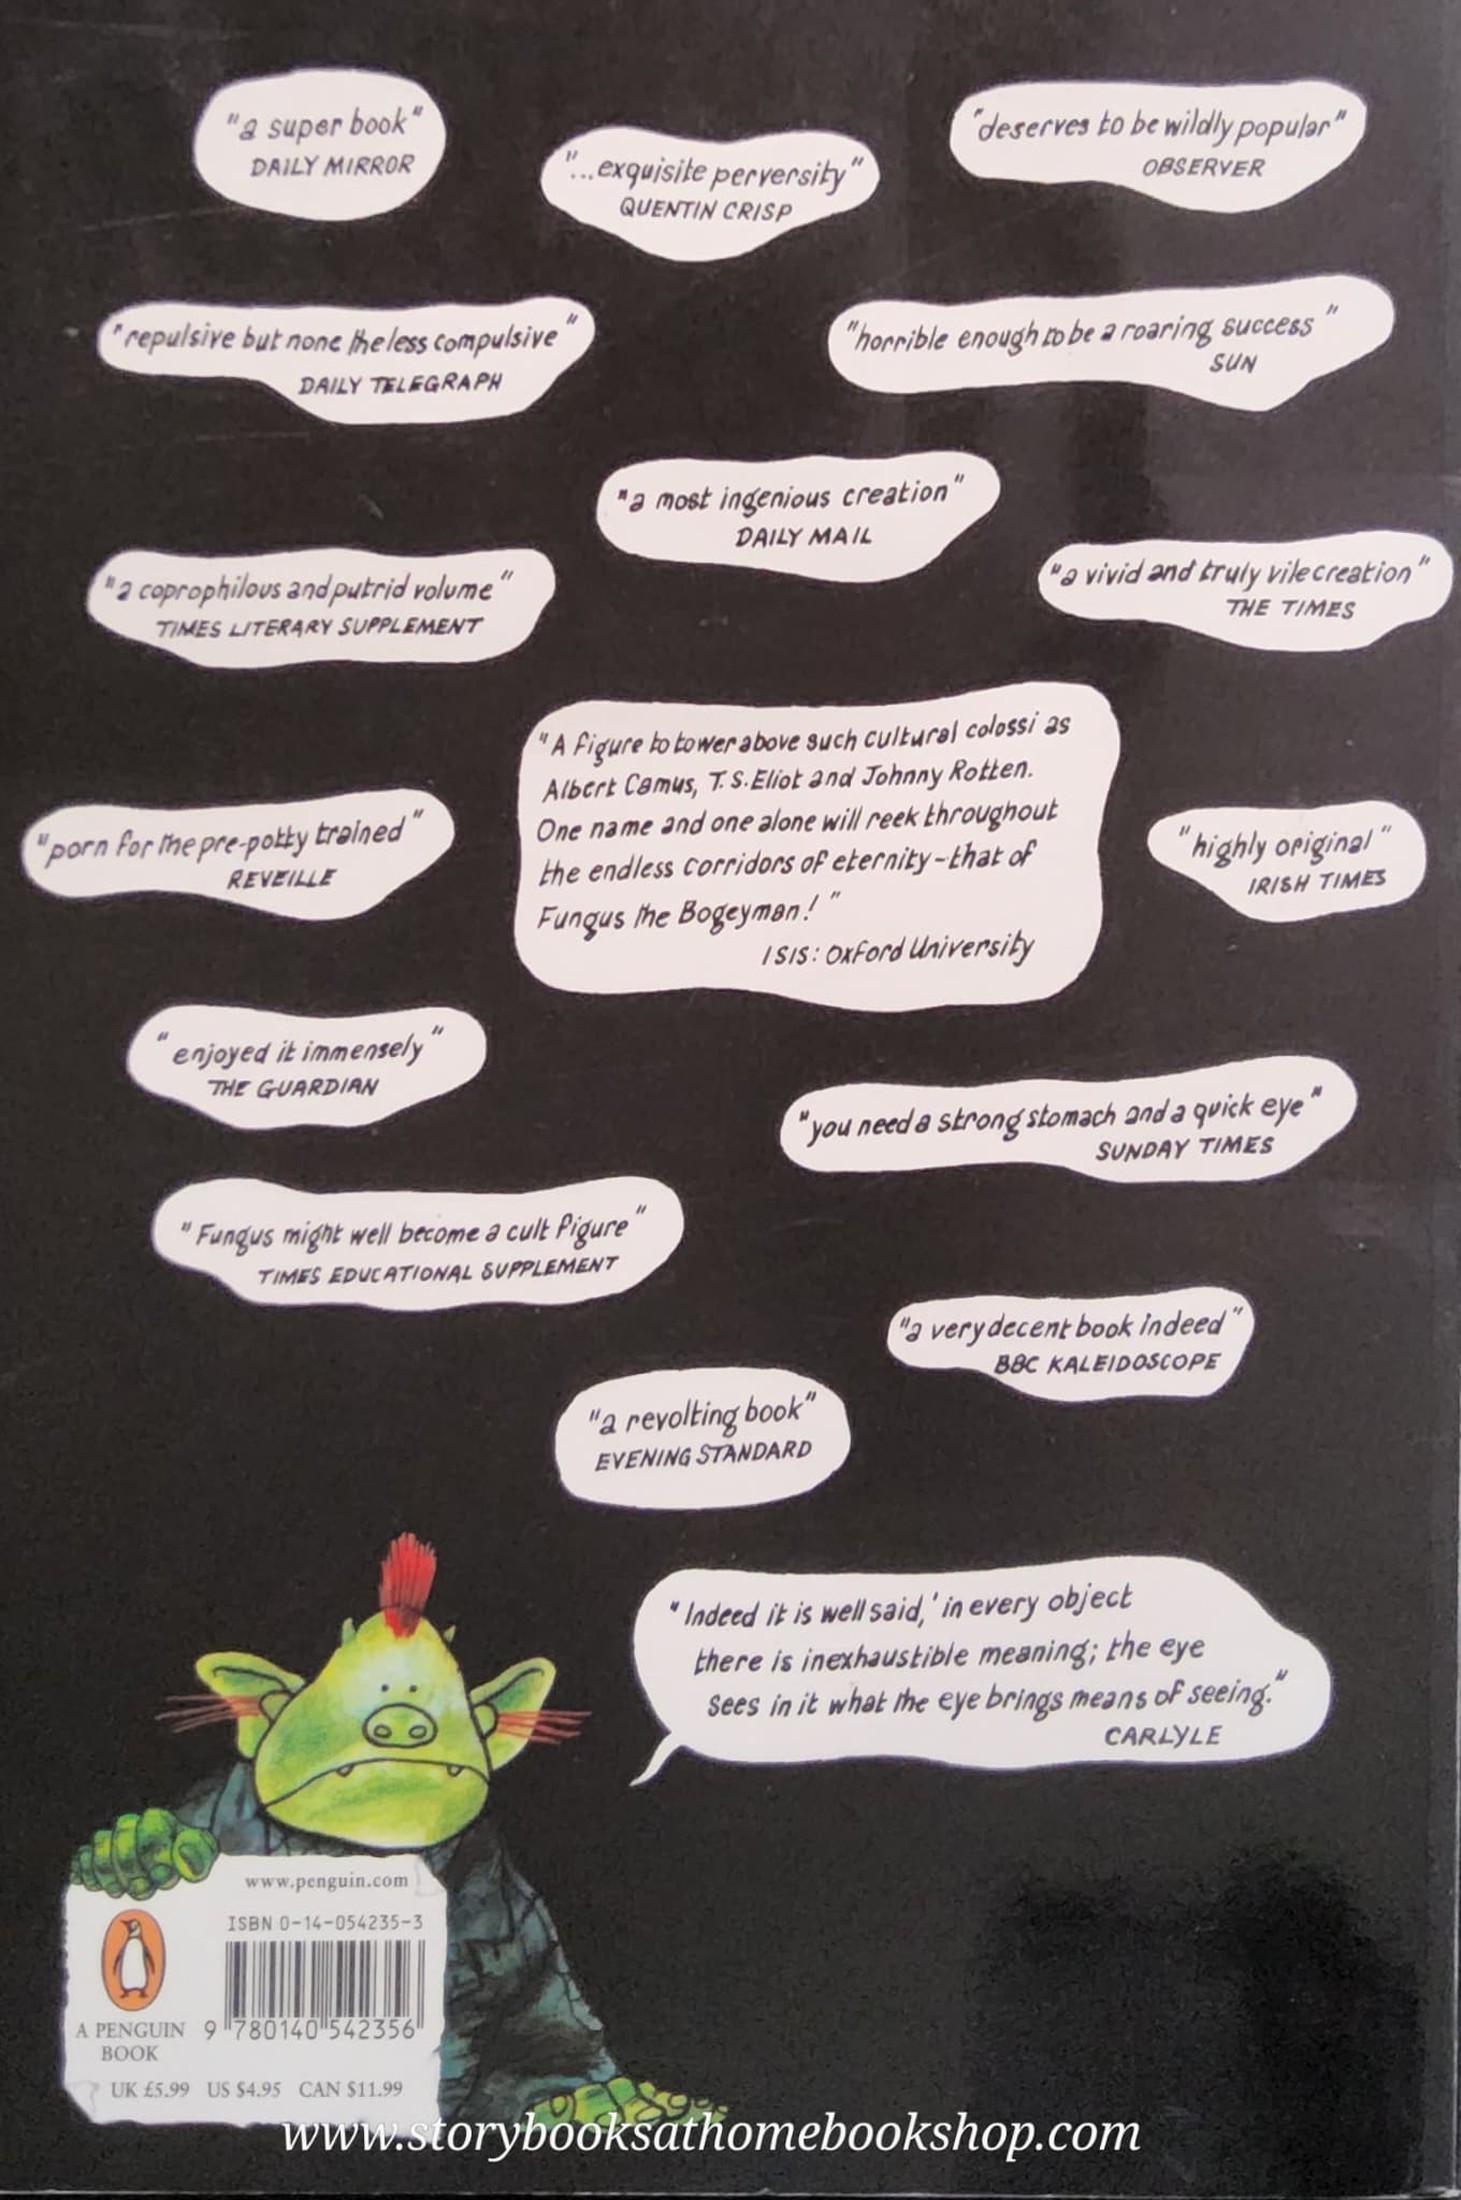 "a super book"
DAILY MIRROR
"...exquisite perversity"
QUENTIN CRISP
"deserves to be wildly popular"
OBSERVER
"repulsive but none theless compulsive"
DAILY TELEGRAPH
"horrible enough to be a roaring success"
SUN
"a most ingenious creation"
DAILY MAIL
"a coprophilous and putrid volume"
TIMES LITERARY SUPPLEMENT
"a vivid and truly vile creation"
THE TIMES
"A figure to tower above such cultural colossi as
Albert Camus, T.S.Eliot and Johnny Rotten.
One name and one alone will reek throughout
the endless corridors of eternity-that of
Fungus the Bogeyman!"
ISIS: Oxford University
"porn for the pre-potty trained"
REVEILLE
"highly original"
IRISH TIMES
"enjoyed it immensely"
THE GUARDIAN
"you need a strong stomach and a quick eye"
SUNDAY TIMES
"Fungus might well become a cult figure"
TIMES EDUCATIONAL SUPPLEMENT
"a very decent book indeed"
BBC KALEIDOSCOPE
"a revolting book"
EVENING STANDARD
"Indeed it is well said, 'in every object
there is inexhaustible meaning; the eye
sees in it what the eye brings means of seeing."
CARLYLE
www.penguin.com
ISBN 0-14-054235-3
9 780140 542356
A PENGUIN
BOOK
UK £5.99 US $4.95 CAN $11.99
www.storybooksathomebookshop.com